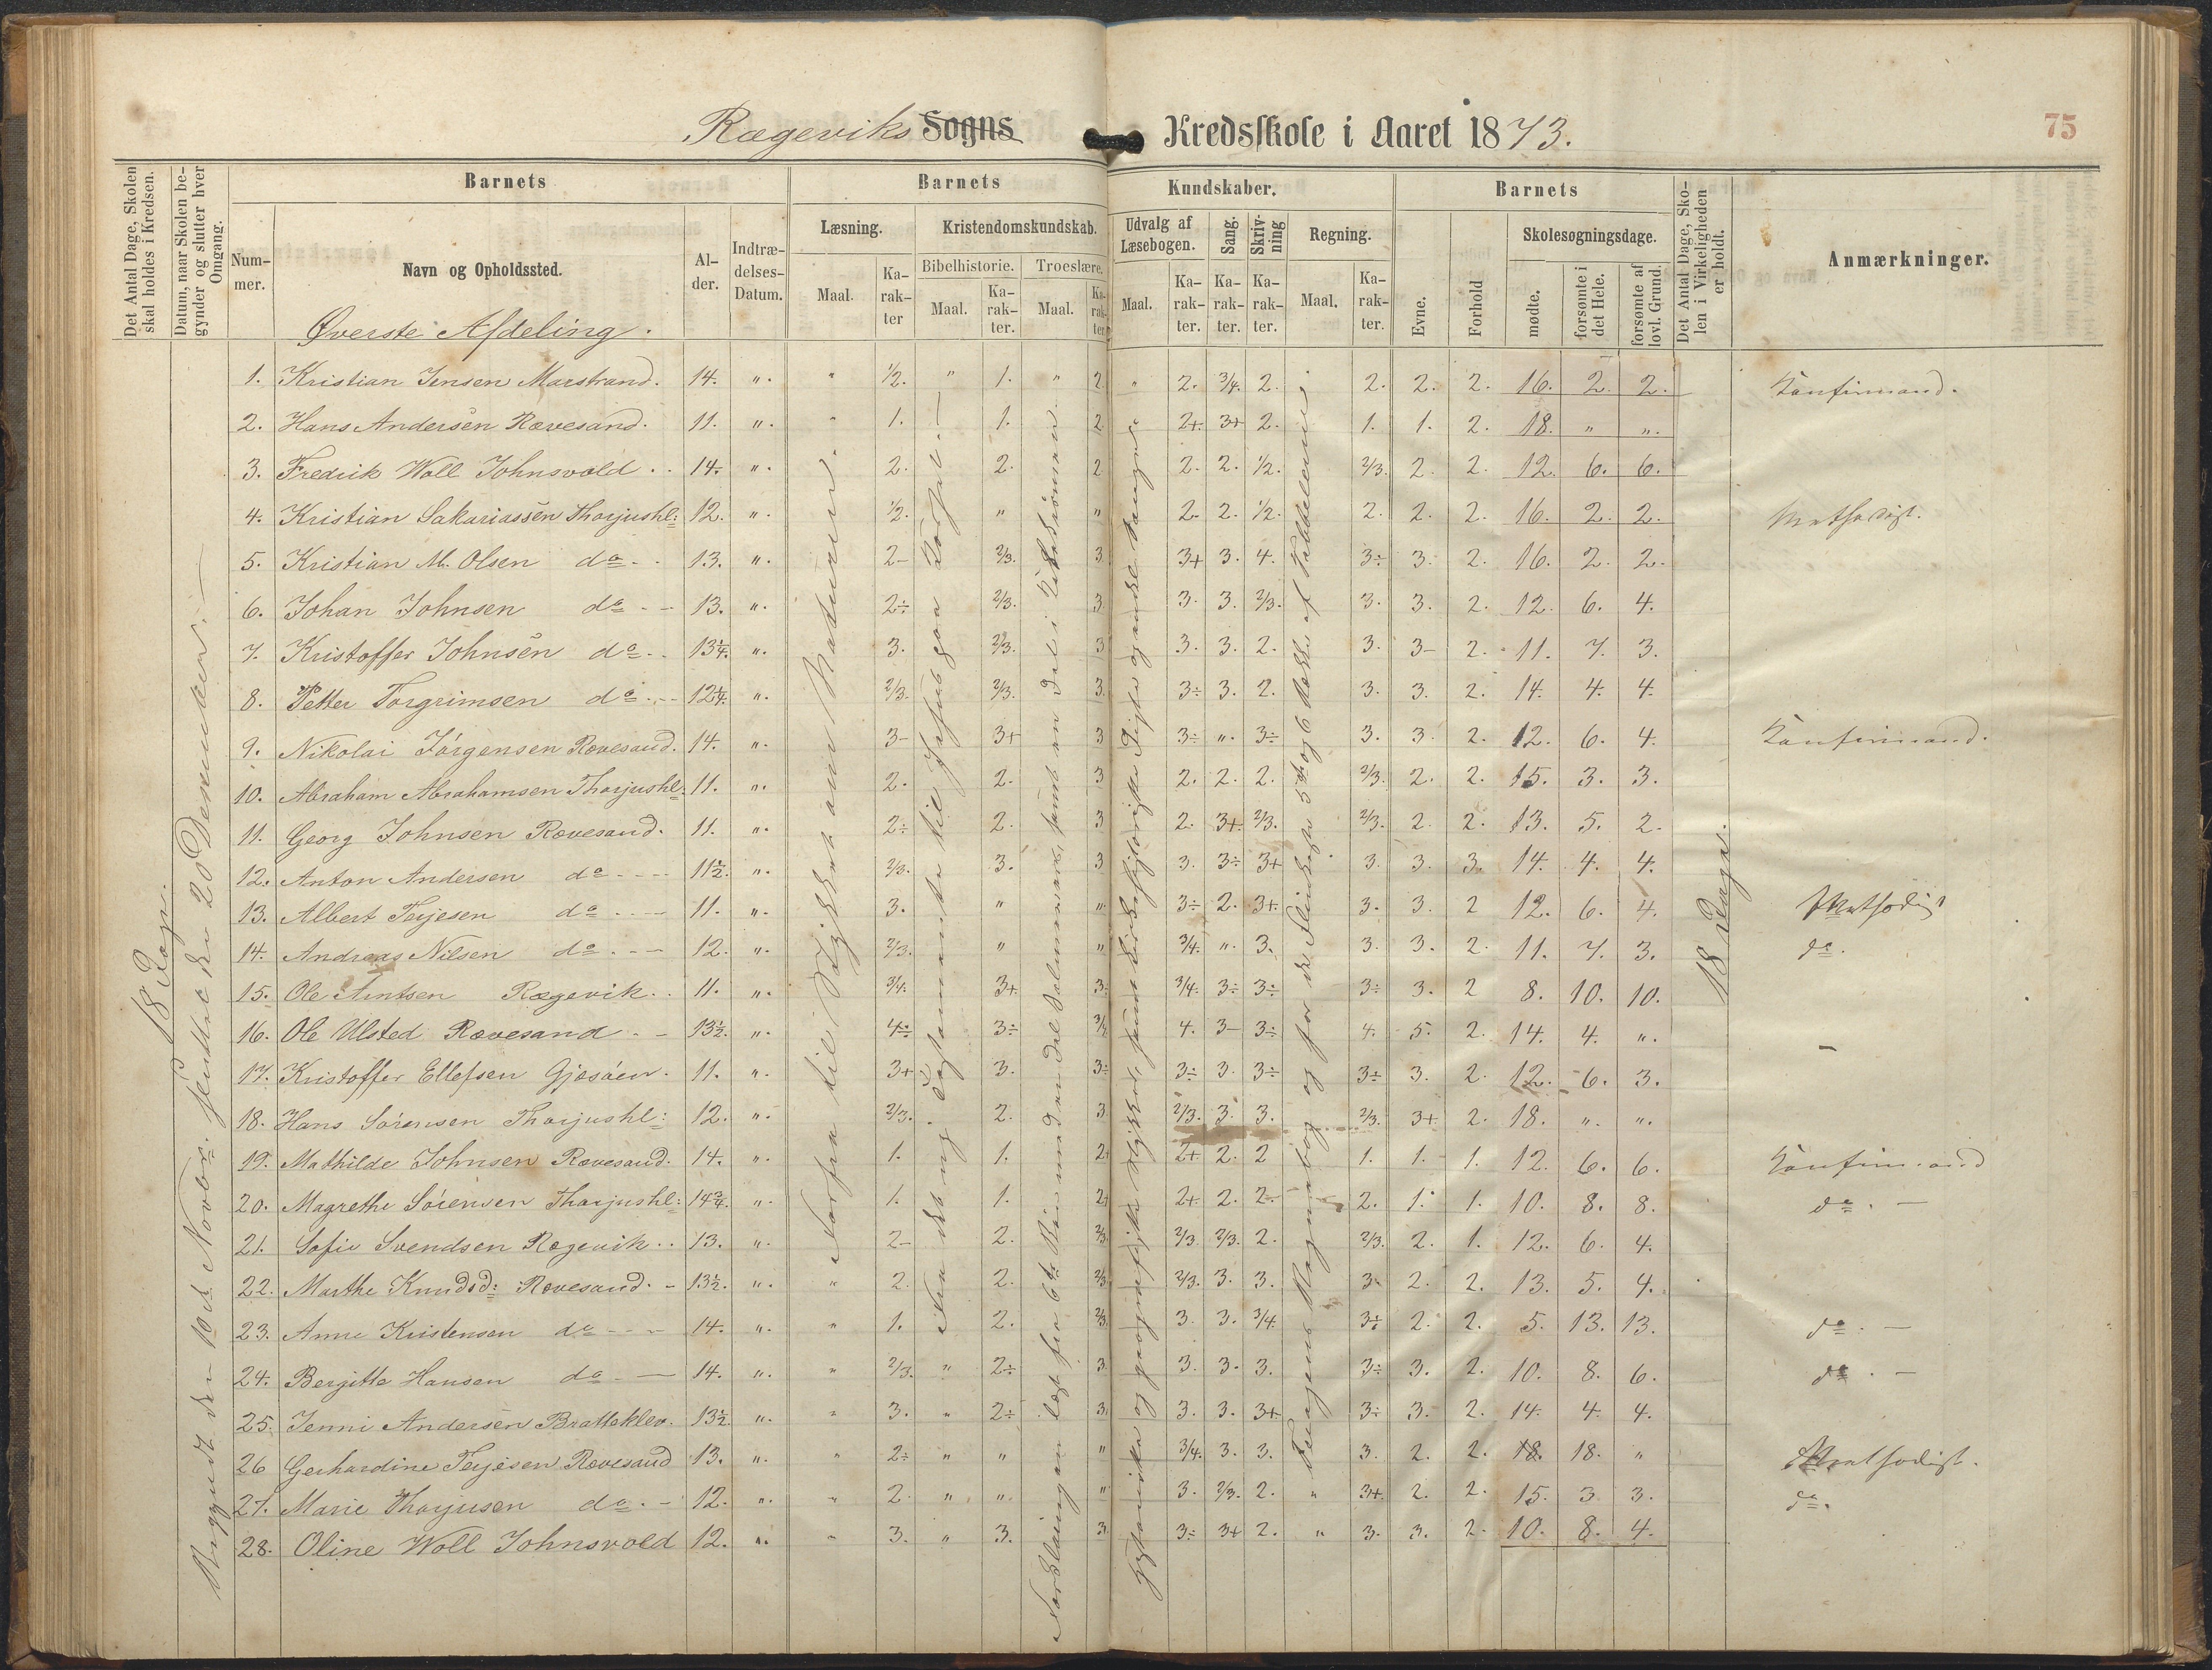 Rægeviks Sogns Kredsskole i Aaret 1873.
75
Det Antal Dage, Skolen skal holdes i Kredsen.
Datum, naar Skolen begynder og slutter hver Omgang.
Barnets
Nummer.
Navn og Opholdssted.
Alder.
Indtrædelses-Datum.
Barnets Kundskaber.
Læsning.
Maal. Karakter
Kristendomskundskab.
Bibelhistorie. Troeslære.
Maal. Karakter. Maal. Karakter
Udvalg af Læsebogen.
Maal. Karakter.
Sang. Karakter.
Skrivning Karakter.
Regning.
Maal. Karakter.
Barnets
Evne. Forhold
Skolesøgningsdage.
mødte. forsømte i det Hele. forsømte af lovl. Grund.
Det Antal Dage, Skolen i Virkeligheden er holdt.
Anmærkninger.
Øverste Afdeling.
18 Dage.
Begyndt den 10de Novbr. sluttet den 20 December.
18 Dage.
1. Kristian Jensen Marstrand. 14. " " 1/2. " 1. " 2. " 2. 3/4. 2. 2. 2. 2. 16. 2. 2. Konfirmand.
2. Hans Andersen Rævesand. 11. " " 1. 1. 2. 2+. 3+ 2. 1. 1. 2. 18. " "
3. Fredrik Woll Johnsvold 14. " 2. 2. 2 2. 2. 1/2. 2/3. 2. 2. 12. 6. 6.
4. Kristian Sakariassen Thorjushl: 12. " 1/2. " " 2. 2. 1/2. 2. 2. 2. 16. 2. 2. Methodist.
5. Kristian M. Olsen do 13. " 2- 2/3. 3. 3+ 3. 4. 3÷ 3. 2. 16. 2. 2.
6. Johan Johnsen do 13. " 2÷ 2/3. 3. 3. 3. 2/3. 3. 3. 2. 12. 6. 4.
7. Kristoffer Johnsen do 13 1/4. " 3. 2/3. 3 3. 3. 2. 3. 3- 2. 11. 7. 3.
8. Petter Torgrimsen do 12 1/4. " 2/3. 2/3. 3. 3÷ 3. 2. 3. 3. 2. 14. 4. 4.
9. Nikolai Jørgensen Rævesand. 14. " 3- 3+ 3 3÷ " 3÷ 3. 3. 2. 12. 6. 4. Konfirmand.
10. Abraham Abrahamsen Thorjushl. 11. " 2. 2. 3 2. 2. 2. 2/3. 2. 2. 15. 3. 3.
11. Georg Johnsen Rævesand. 11. " 2÷ 2. 3 2. 3+. 2/3. 2/3. 2. 2. 13. 5. 2.
12. Anton Andersen do 11 1/2. " 2/3. 3. 3 3. 3÷ 3+ 3. 3. 3. 14. 4. 4.
13. Albert Terjesen do 11. " 3. " " 3÷ 2. 3+. 3. 3. 2 12. 6. 4. Methodist
14. Andreas Nilsen do 12. " 2/3. " " 3/4. " 3. 3. 3. 2. 11. 7. 3. do.
15. Ole Arntsen Rægevik. 11. " 3/4. 3+. 3. 3/4. 3÷ 3÷ 3÷ 3. 2 8. 10. 10.
16. Ole Ulsted Rævesand 13 1/2. " 4÷ 3÷ 4. 3- 3÷ 4. 5. 2. 14. 4. "
17. Kristoffer Ellefsen Gjøsøen. 11. " 3+ 3. 3÷ 3÷ 3. 3÷ 3÷ 3. 2. 12. 6. 3.
18. Hans Sørensen Thorjushl: 12. " 2/3. 2. 3. 2/3. 3. 3. 2/3. 3+. 2. 18. " "
19. Mathilde Johnsen Rævesand. 14. " 1. 1. 2+ 2+ 2. 2 1. 1. 1. 12. 6. 6. Konfirmand
20. Magrethe Sørensen Thorjushl: 14 3/4. " 1. 1. 2+ 2+. 2. 2. 2. 1. 1. 10. 8. 8. do.
21. Sofie Svendsen Rægevik 13. " 2- 2. 2/3. 2/3. 2/3. 2. 2/3. 2. 1. 12. 6. 4.
22. Marthe Knudsd: Rævesand. 13 1/2. " " 2. 2. 2/3. 2/3. 3. 3. 3. 2. 2. 13. 5. 4.
23. Anne Kristensen do 14. " " 1. 2. 2/3. 3. 3. 3/4 3÷ 2. 2. 5. 13. 13. do.
24. Bergitte Hansen do 14. " " 2/3. " 2÷ 3. 3. 3. 3. 3÷ 3. 2. 10. 8. 6. do.
25. Jenni Andersen Bratteklev. 13 1/2. " " 3. " 2÷ 3. 3. 3. 3+ 3÷ 3. 2. 14. 4. 4.
26 Gerhardine Terjesen Rævesand 13. " " 2÷ " " " 3/4. 3. 3. 3. 2. 2. 18. 18. " Methodist.
27. Marie Thorjusen do. 12. " " 2. " " " 3. 2/3. 2. " 3+ 2. 2. 15. 3 3. do.
28. Oline Woll Johnsvold 12. " " 3. " 3. 3. 3÷ 3+ 2. " 3. 3. 2. 10. 8. 4.